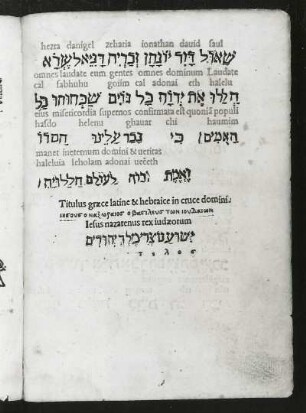 hezra danigel zcharia ionathan dauid saul
שאול דויד יונתן זכריה דניאל עזרא
omnes laudate eum gentes omnes dominum Laudate
cal sabhuhu goiim cal adonai eth halelu
הללו את יהוה כל גוים שבחוהו כל
eius misericordia supernos confirmata est quoniã populi
hasdo helenu ghauar chi haumim
האמים כי גבר עלינו חסדו
manet ineternum domini & ueritas
halehuia leholam adonai ueĉeth
ואמת יהוה לעולם הללויה
Titulus græce latine & hebraice in cruce domini
Iesus nazarenus rex iudæorum
ישוע נוצר מלך יהודים
τελος